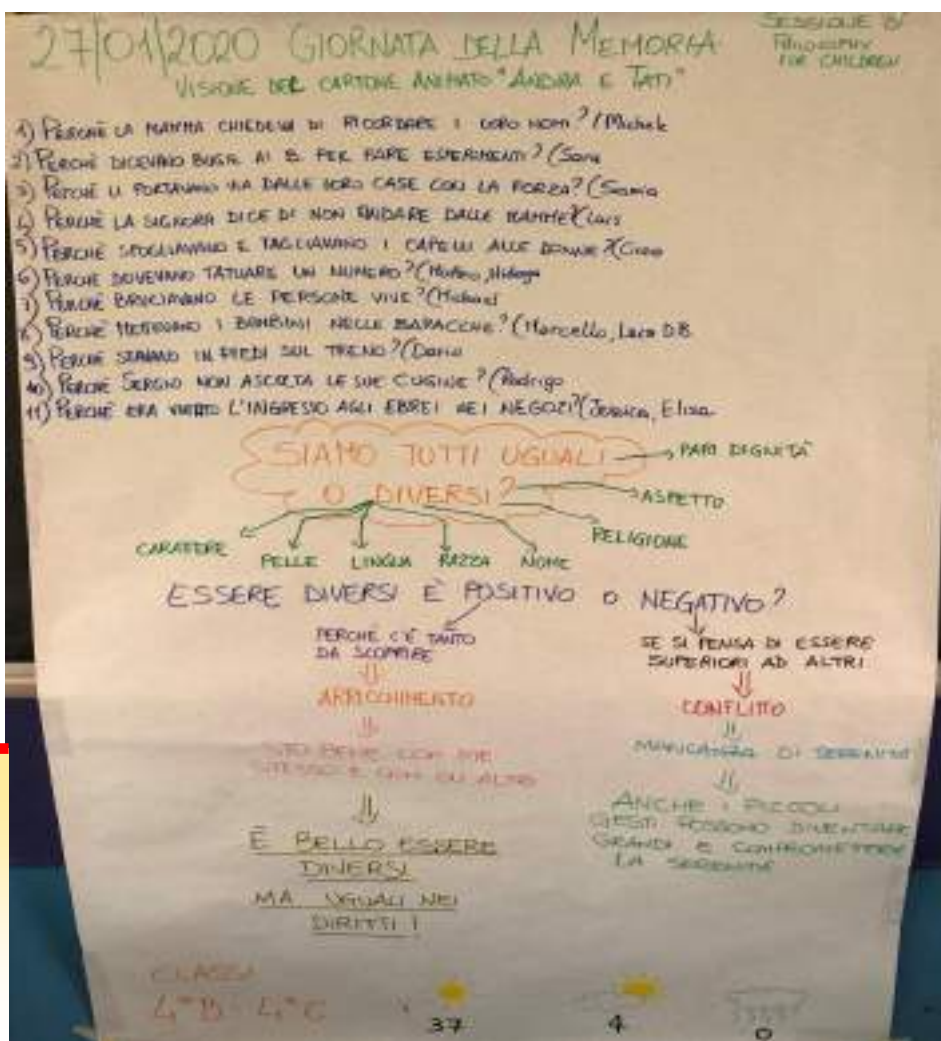 27/01/2020 GIORNATA DELLA MEMORIA
SESSIONE DI
PHILOSOPHY
FOR CHILDREN
VISIONE DEL CARTONE ANIMATO "ANDRA E TATI"
1) PERCHÉ LA MAMMA CHIEDEVA DI RICORDARE I LORO NOMI? (Michele
2) PERCHÉ DICEVANO BUGIE AI B. PER FARE ESPERIMENTI? (Sara
3) PERCHÉ LI PORTAVANO VIA DALLE LORO CASE CON LA FORZA? (Samia
4) PERCHÉ LA SIGNORA DICE DI NON ANDARE DALLE MAMME? (Lars
5) PERCHÉ SPOGLIAVANO E TAGLIAVANO I CAPELLI ALLE DONNE? (Ciro
6) PERCHÉ DOVEVANO TATUARE UN NUMERO? (
7) PERCHÉ BRUCIAVANO LE PERSONE VIVE? (Michael
8) PERCHÉ METTEVANO I BAMBINI NELLE BARACCHE? (Marcello, Luca D.B.
9) PERCHÉ STAVANO IN PIEDI SUL TRENO? (Dario
10) PERCHÉ SERGIO NON ASCOLTA LE SUE CUGINE? (Rodrigo
11) PERCHÉ ERA VIETATO L'INGRESSO AGLI EBREI NEI NEGOZI? (Jessica, Elisa
SIAMO TUTTI UGUALI
O DIVERSI?
PARI DIGNITÀ
ASPETTO
RELIGIONE
CARATTERE
PELLE
LINGUA
RAZZA
NOME
ESSERE DIVERSI È POSITIVO O NEGATIVO?
PERCHÉ C'È TANTO
DA SCOPRIRE
ARRICCHIMENTO
STO BENE CON ME
STESSO E CON GLI ALTRI
È BELLO ESSERE
DIVERSI
MA UGUALI NEI
DIRITTI!
SE SI PENSA DI ESSERE
SUPERIORI AD ALTRI
CONFLITTO
MANCANZA DI SERENITÀ
ANCHE I PICCOLI
GESTI POSSONO DIVENTARE
GRANDI E COMPROMETTERE
LA SERENITÀ
CLASSI
4ªB - 4ªC
37
4
0